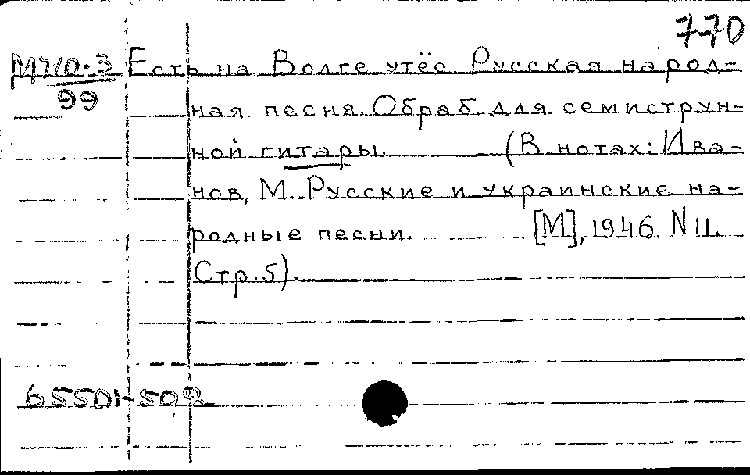 770
М710-3 Есть на Волге утёс. Русская народ-
99 ная песня. Обраб. для семиструн-
ной гитары. (В нотах: Ива-
нов, М. Русские и украинские на-
родные песни. [М], 1946. N 11.
Стр. 5).
65501-502